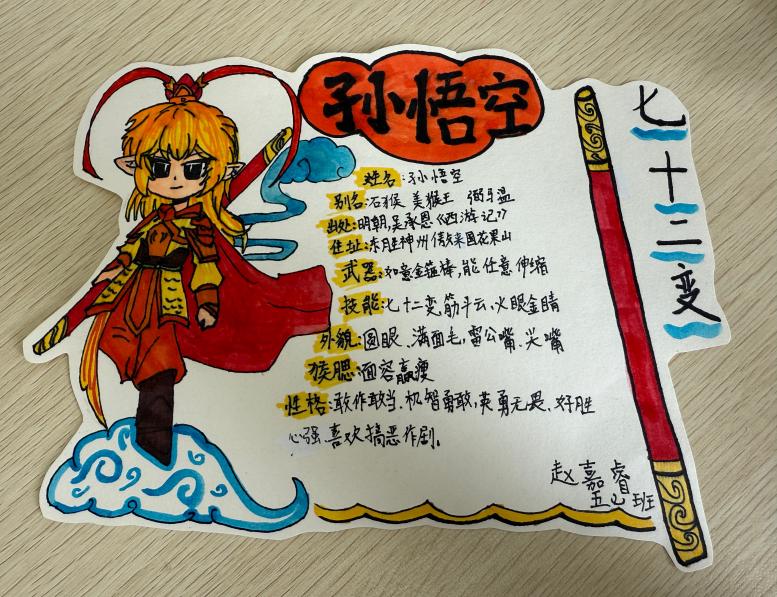 孙悟空
姓名:孙悟空
别名:石猴 美猴王 弼马温
出处:明朝,吴承恩《西游记》
住址:东胜神州傲来国花果山
武器:如意金箍棒,能任意伸缩
技能:七十二变,筋斗云,火眼金睛
外貌:圆眼、满面毛,雷公嘴、尖嘴
猴腮,面容羸瘦
性格:敢作敢当、机智勇敢,英勇无畏、好胜
心强、喜欢搞恶作剧。
七十二变
赵嘉睿
班